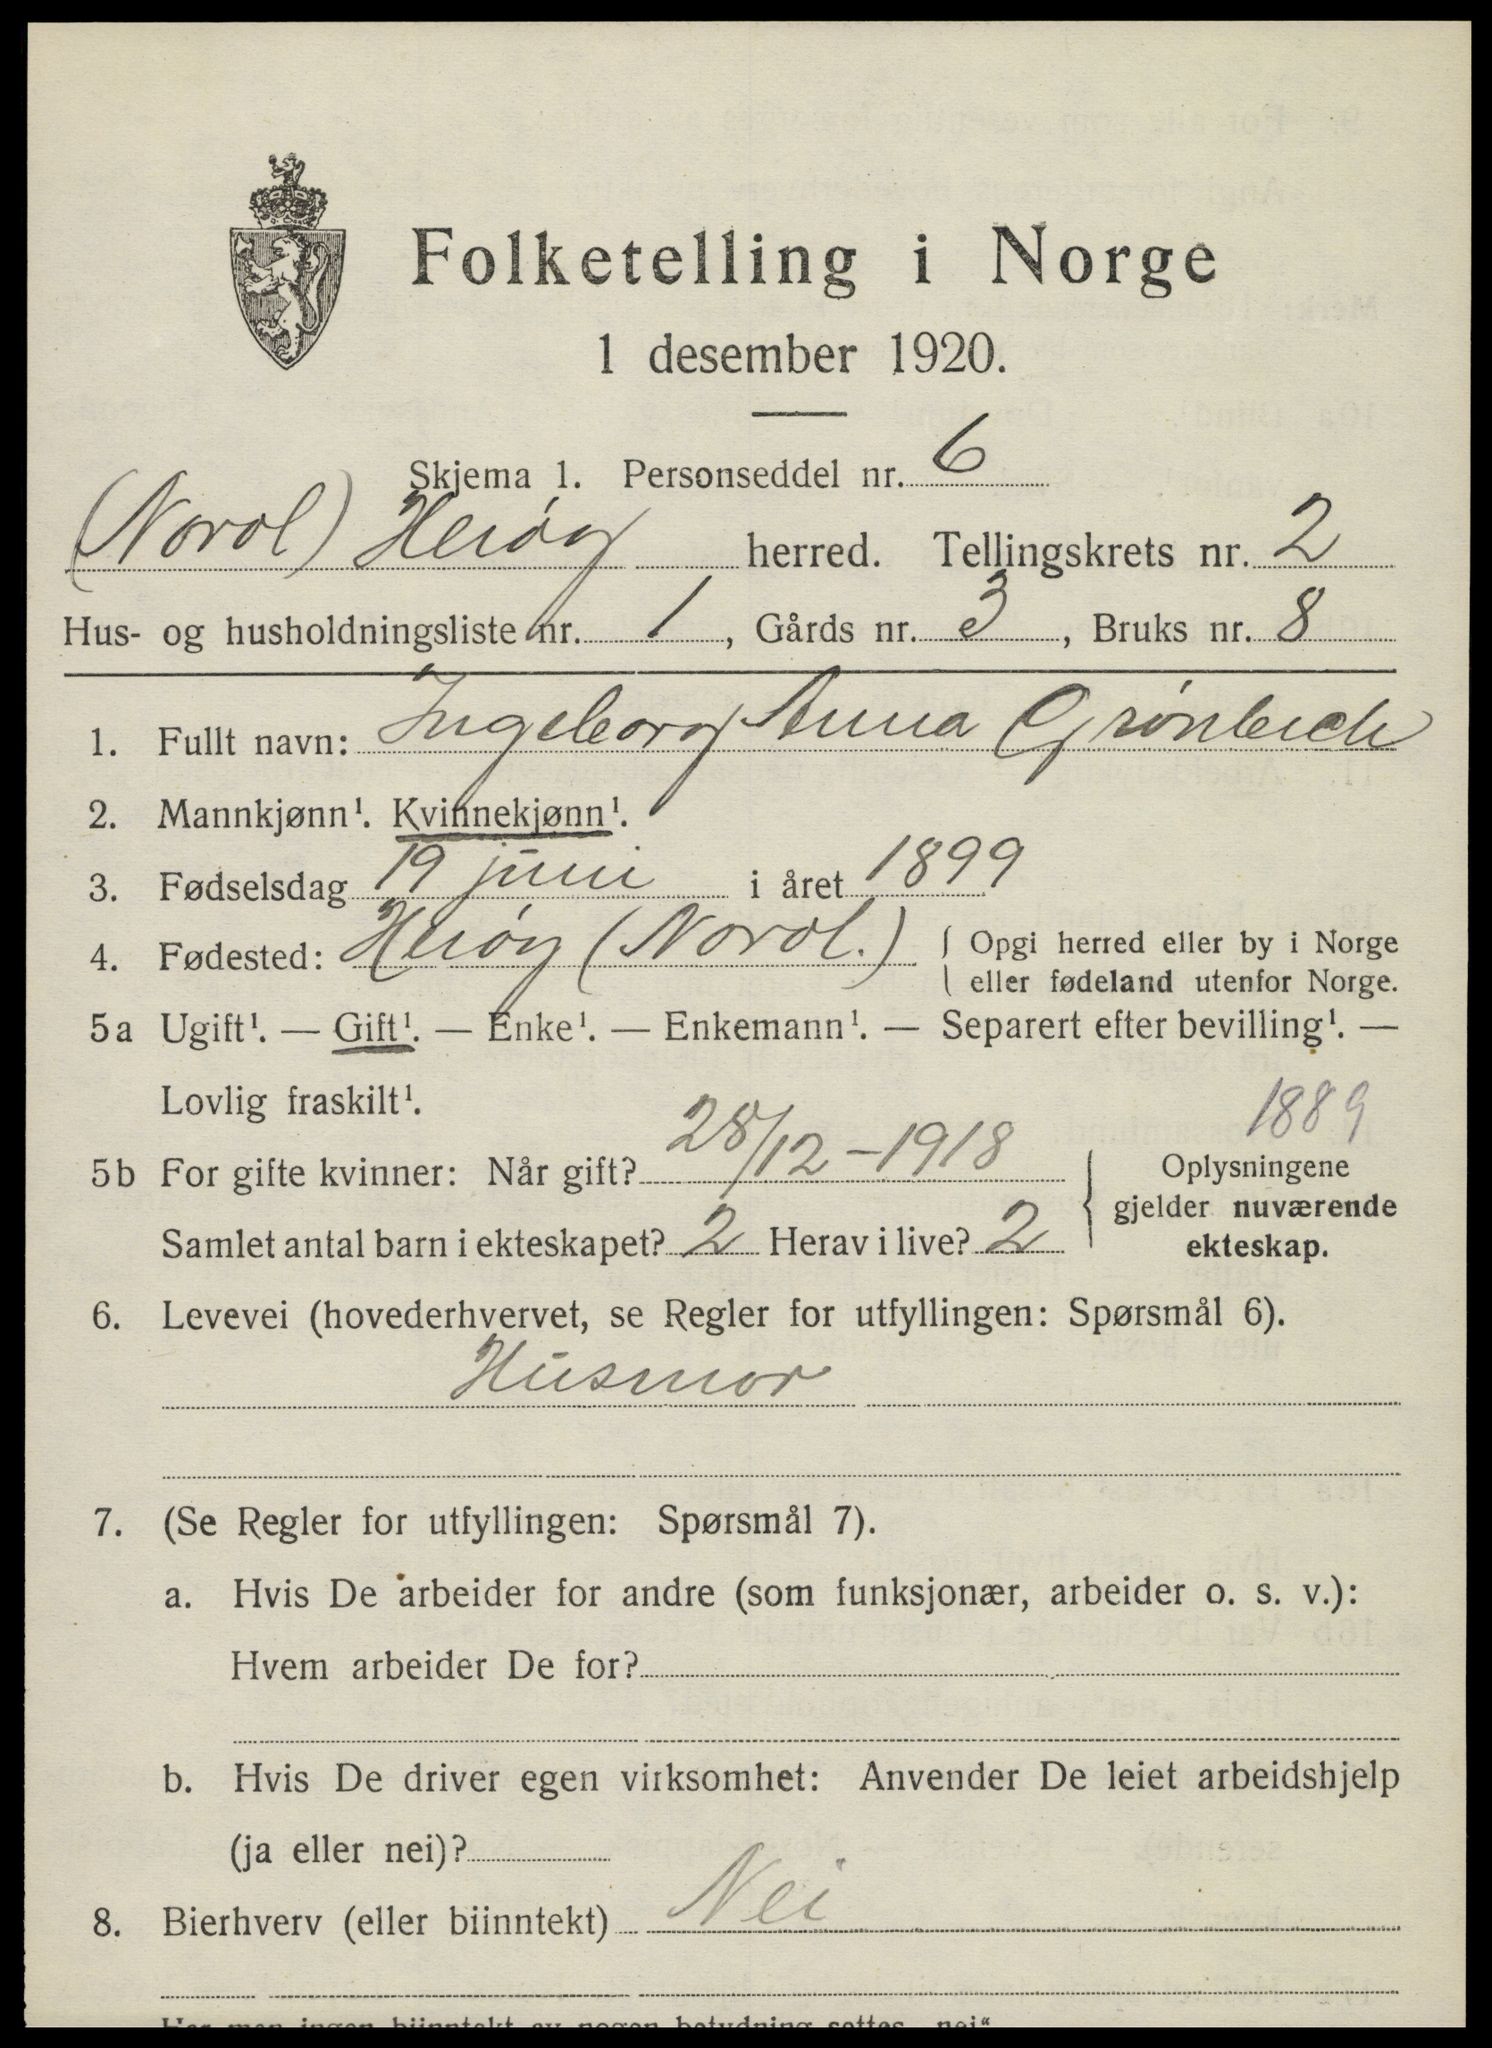 Folketelling i Norge
1 desember 1920.
Skjema 1. Personseddel nr. 6
(Nordl) Herøy herred. Tellingskrets nr. 2
Hus- og husholdningsliste nr. 1, Gårds nr. 3, Bruks nr. 8
1. Fullt navn: Ingeborg Anna Grønbech
2. Mannkjønn¹. Kvinnekjønn¹.
3. Fødselsdag 19 juni i året 1899
4. Fødested: Herøy (Nordl.) { Opgi herred eller by i Norge
eller fødeland utenfor Norge.
5a Ugift¹. — Gift¹. — Enke¹. — Enkemann¹. — Separert efter bevilling¹. —
Lovlig fraskilt¹.
1889
5b For gifte kvinner: Når gift? 28/12-1918
Samlet antal barn i ekteskapet? 2 Herav i live? 2
{ Oplysningene
gjelder nuværende
ekteskap.
6. Levevei (hovederhvervet, se Regler for utfyllingen: Spørsmål 6).
Husmor
7. (Se Regler for utfyllingen: Spørsmål 7).
a. Hvis De arbeider for andre (som funksjonær, arbeider o. s. v.):
Hvem arbeider De for?
b. Hvis De driver egen virksomhet: Anvender De leiet arbeidshjelp
(ja eller nei)?
8. Bierhverv (eller biinntekt) Nei
Har man ingen biinntekt av nogen betydning settes „nei“